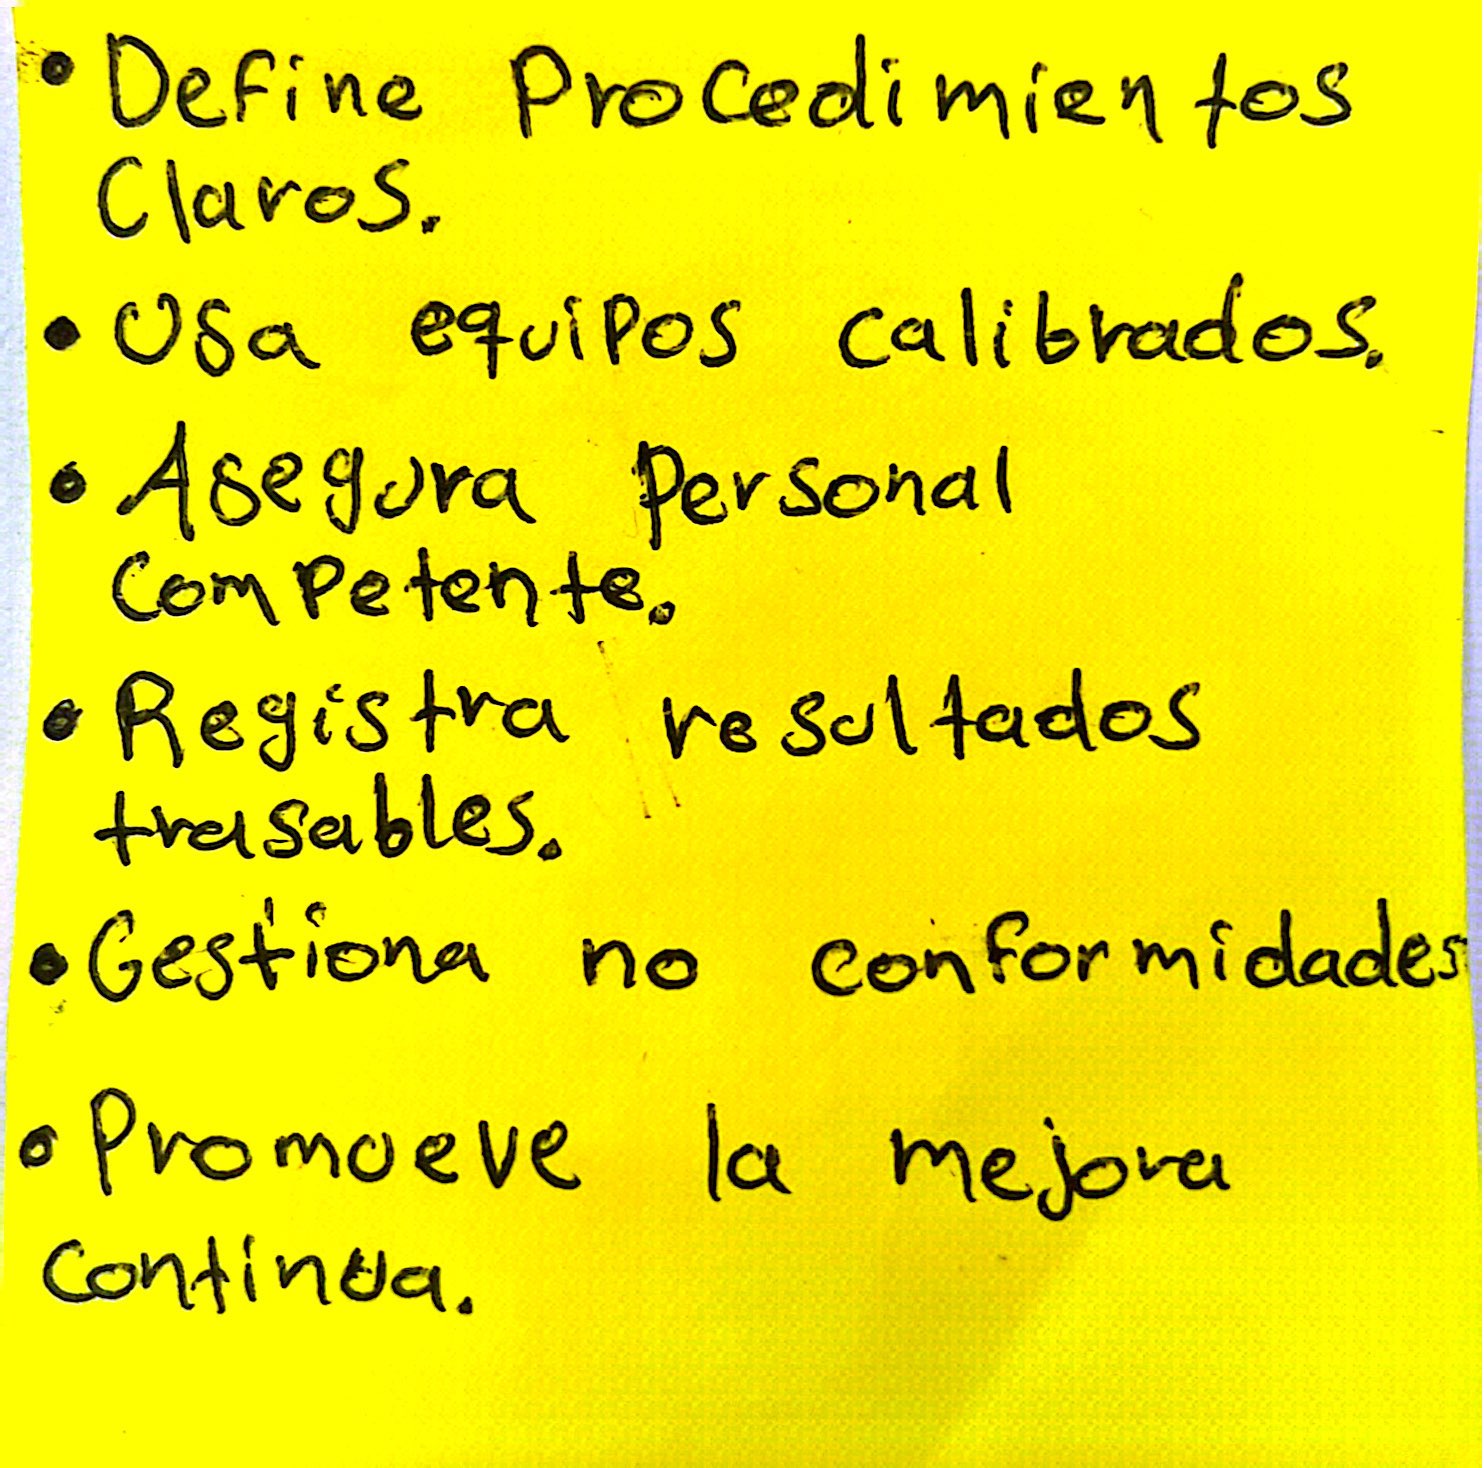 • Define Procedimientos
Claros.
• Usa equipos calibrados.
• Asegura Personal
Competente.
• Registra resultados
trasables.
• Gestiona no conformidades
• Promueve la mejora
continua.